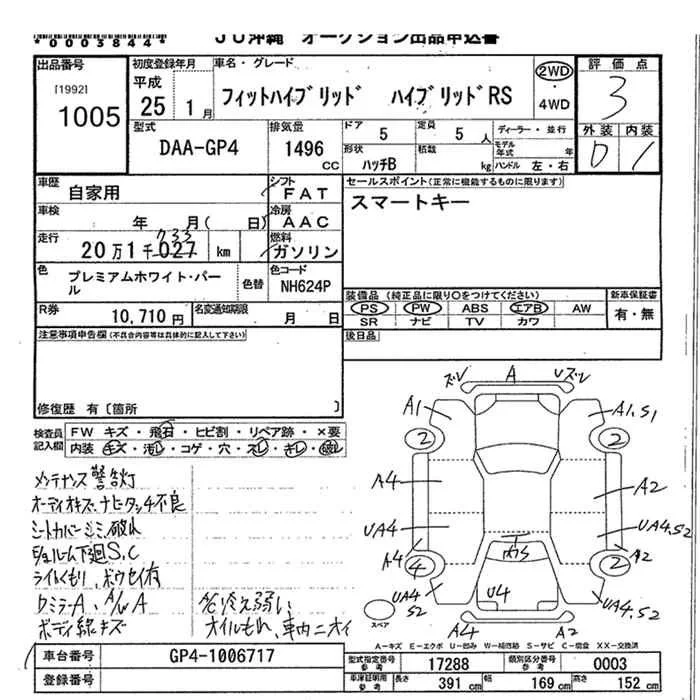 *0003844*
JU沖縄 オークション出品申込書
出品番号
[1992]
1005
初度登録年月
平成
25 1月
車名・グレード
フィットハイブリッド ハイブリッドRS
2WD
・4WD
評価点
3
型式
DAA-GP4
排気量
1496
CC
ドア 5
定員 5 人
形状
ハッチB
積載
kg
ディーラー・並行
モデル年式 年
ハンドル 左・右
外装 内装
D 1
車歴
自家用
シフト
FAT
車検
年 月( 日)
冷房
AAC
走行
20万1千027 km
733
燃料
ガソリン
色
プレミアムホワイト・パール
色替
色コード
NH624P
R券
10,710 円
名変通知期限
月 日
セールスポイント(正常に機能するものに限ります)
スマートキー
装備品 (純正品に限り○をつけてください)
PS PW ABS エアB AW
SR ナビ TV カワ
新車保証書
有・無
後日品
注意事項申告欄(不具合内容等は具体的に記入して下さい)
修復歴 有〔箇所 〕
検査員
記入欄
FW キズ・飛石・ヒビ割・リペア跡・×要
内装 キズ・汚レ・コゲ・穴・スレ・キレ・破レ
メンテナンス警告灯
オーディオキズ、ナビタッチ不良
シートカバーシミ、破れ
下廻S、C
ライトくもり、ボウセイ有
ミラーA、A/W A
ボディ線キズ
A/C冷え弱い
オイルもれ、車内ニオイ
ズレ A Uズレ
A1 A1,S1
2 2
A4 A2
UA4 UA4,S2
A4 A2
4 2
UA4 S2
U4
UA4,S2
A4 A2
スペア
A-キズ E-エクボ U-凹み W-補修跡 S-サビ C-腐食 XX-交換済
車台番号
GP4-1006717
登録番号
型式指定番号
参考
17288
類別区分番号
参考
0003
車庫証明用
参考
長さ 391 cm
幅 169 cm
高さ 152 cm